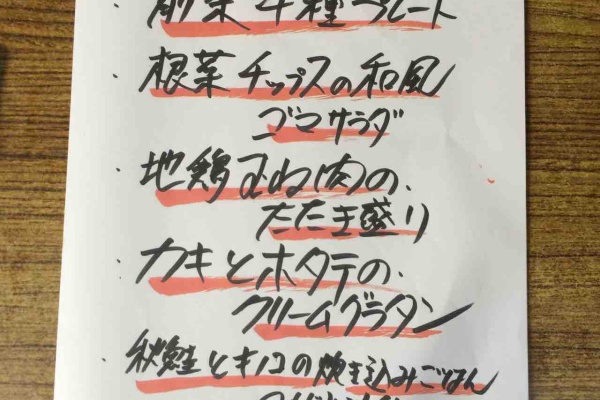 ・前菜4種プレート
・根菜チップスの和風
ゴマサラダ
・地鶏むね肉の
たたき盛り
・カキとホタテの
クリームグラタン
・秋鮭とキノコの炊き込みごはん